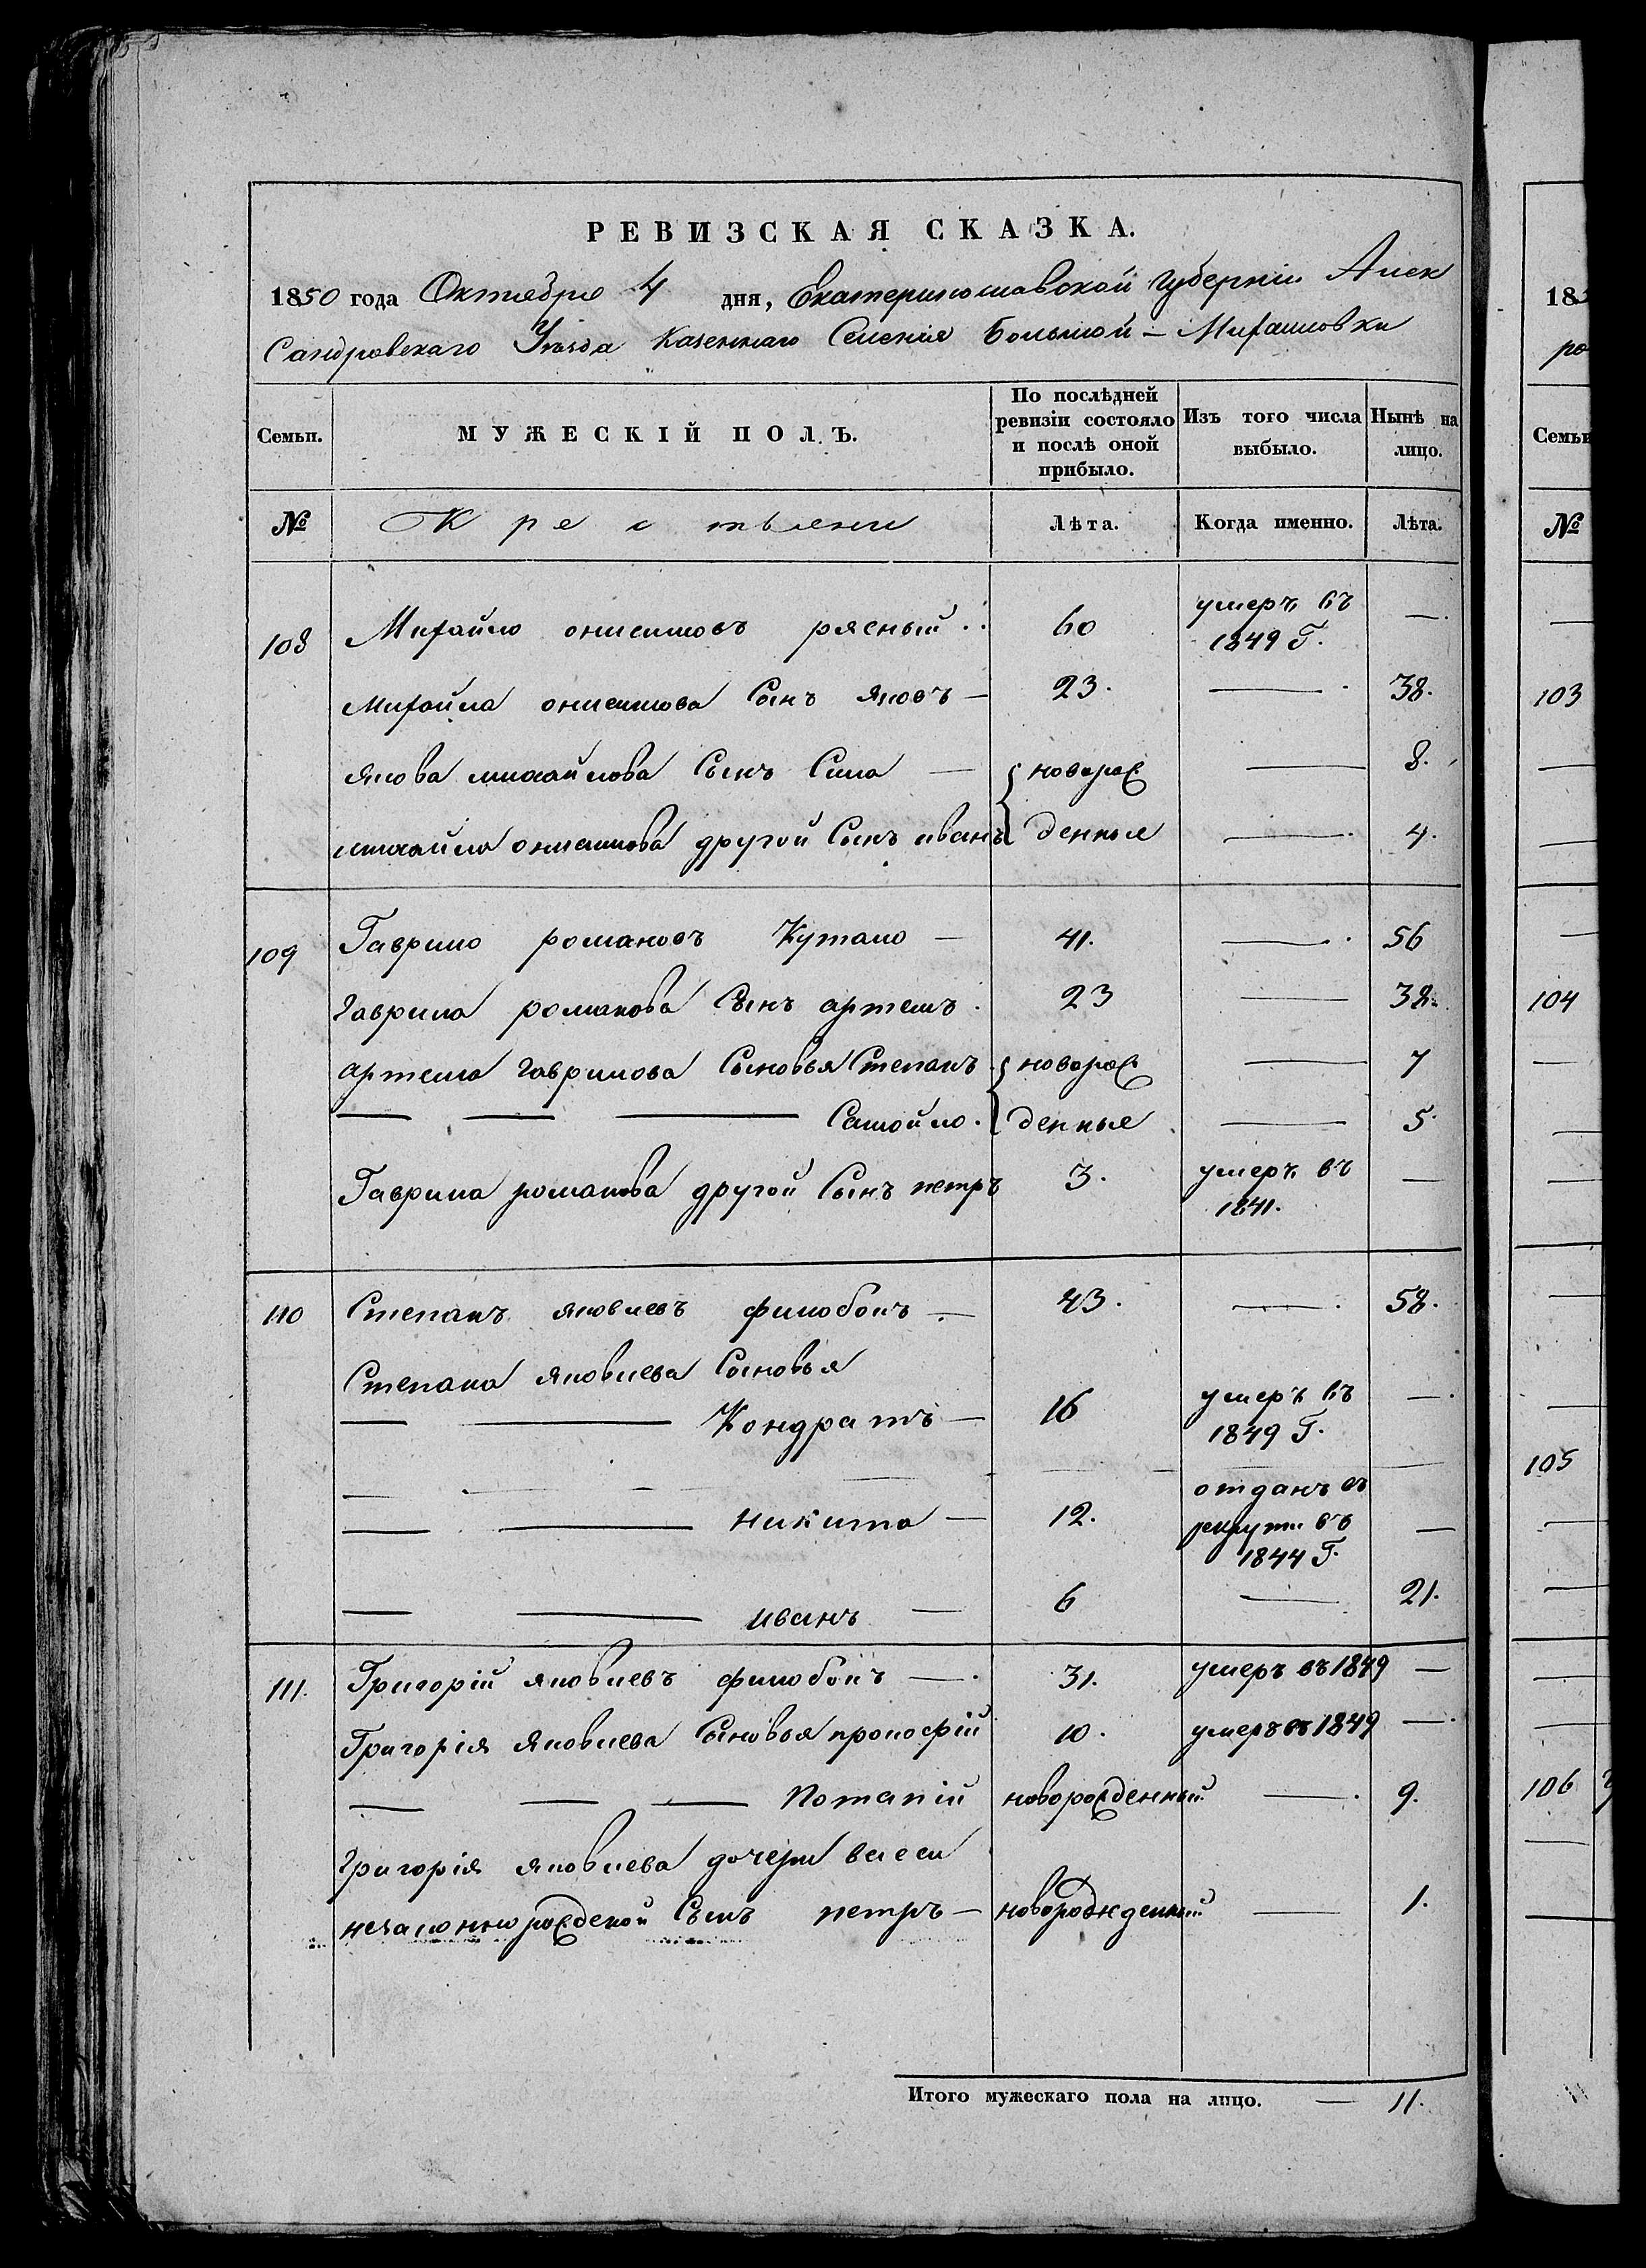 РЕВИЗСКАЯ СКАЗКА.
1850 года Октября 4 дня, Екатеринославской Губерніи Алек
Сандровскаго Уѣзда Казеннаго Селенія Большой - Михайловки
Семьи. МУЖЕСКІЙ ПОЛЪ. По послѣдней ревизіи состояло и послѣ оной прибыло. Изъ того числа выбыло. Нынѣ на лицо.
№ Крестьяни Лѣта. Когда именно. Лѣта.
108 Михайло онисимовъ рясный 60 умеръ въ 1849 Г. —
Михайла онисимова Сынъ яковъ — 23. — 38.
якова михайлова Сынъ Сила — новорож — 8.
михайла онисимова другой Сынъ иванъ денные — 4.
109 Гаврило романовъ Кутало — 41. — 56
Гаврила романова Сынъ артемъ 23 — 38.
артема Гаврилова Сыновья Степанъ новорож — 7
— — — Самойло. денные — 5.
Гаврила романова другой Сынъ петръ 3. умеръ въ 1841. —
110 Степанъ яковлевъ филобокъ — 43. — 58.
Степана яковлева Сыновья
— — Кондратъ — 16 умеръ въ 1849 Г. —
— — никита — 12. отданъ въ рекруты въ 1844 Г. —
— — иванъ — 6 — 21.
111. Григорій яковлевъ филобокъ — 31. умеръ въ 1849 —
Григорія яковлева Сыновья прокофій 10. умеръ въ 1849 —
— — — Потапій новорожденный — 9.
Григорія яковлева дочери
незаконнорожденой Сынъ петръ — новорожденный — 1.
Итого мужескаго пола на лицо. — 11.
18
ро
Семьи
№
103
104
105
106